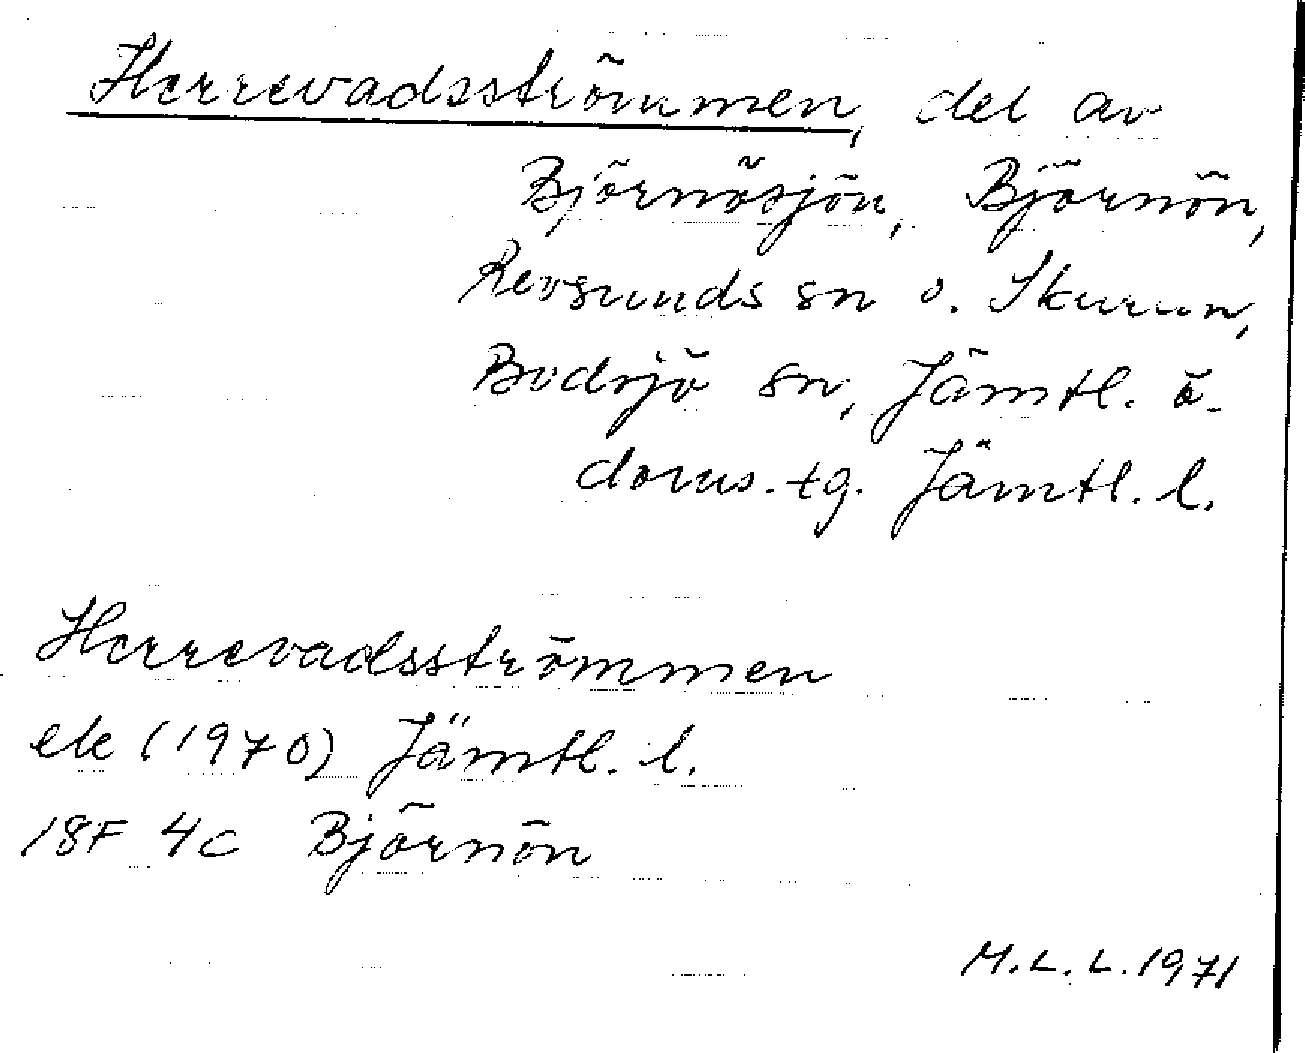 Herrevadsströmmen, del av
Björnösjön, Björnön,
Revsunds sn o. Skurun,
Bodsjö sn, Jämtl. ö.
doms. tg. Jämtl. l.
Herrevadsströmmen
ek (1970) Jämtl. l.
18F 4c Björnön
M.L.L. 1971